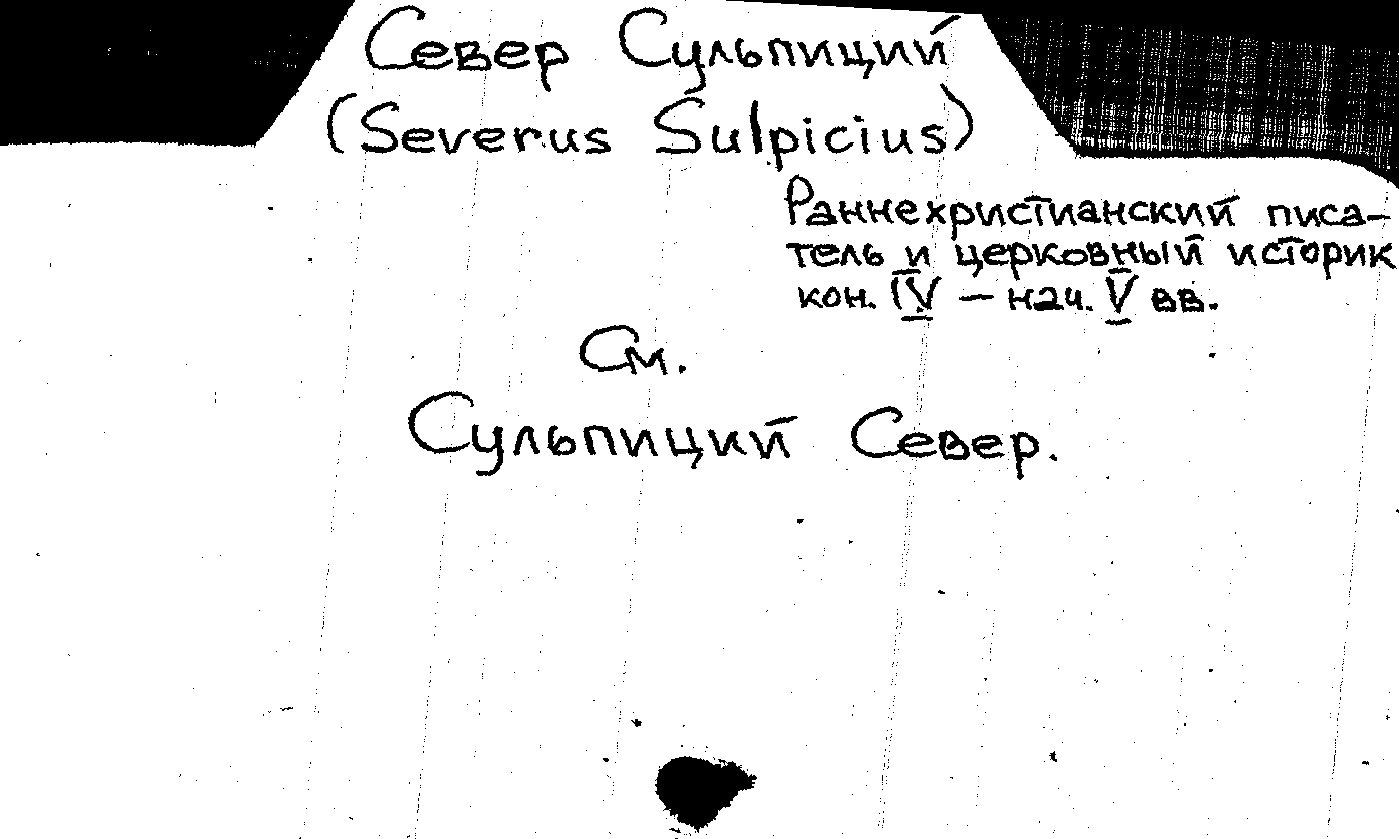 Север Сульпиций
(Severus Sulpicius)
Раннехристианский писа-
тель и церковный историк
кон. IV – нач. V вв.
См.
Сульпиций Север.